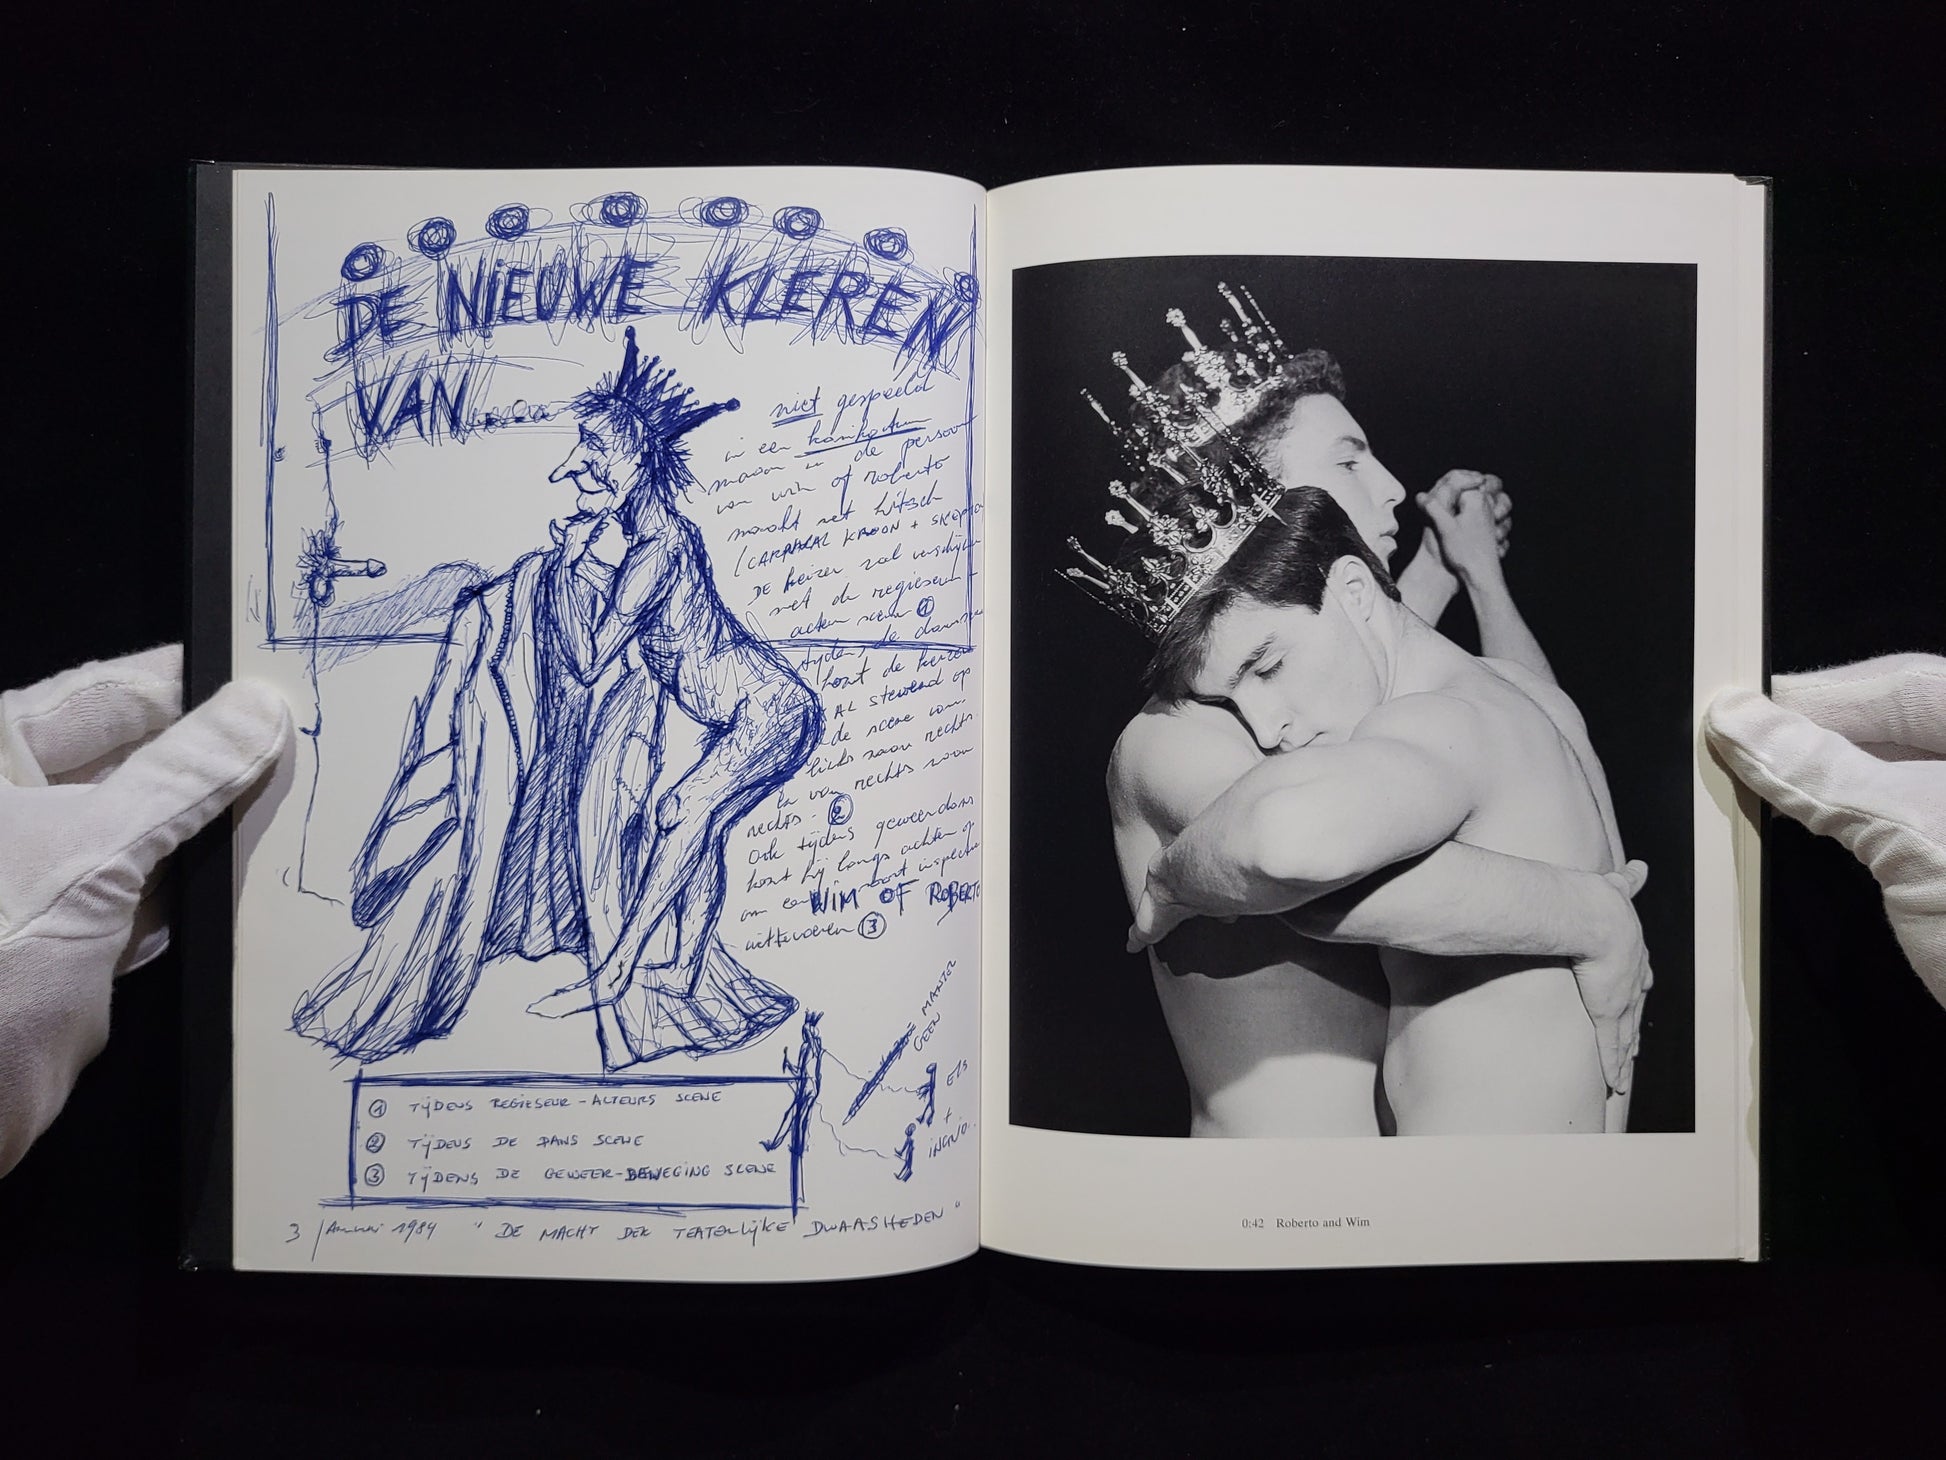 DE NIEUWE KLEREN
VAN
niet gespeeld
in een
maar in de persoon
van wim of roberto
maakt met kitsch
(CARNAVAL KROON +
DE keizer zal verschijnen
met de regisseur -
acteur scene ①
tijdens de dansscene
komt de keizer
AL stervend op
de scene van
links naar rechts
En van rechts naar
rechts. ②
ook tijdens geweerdans
komt hij langs achter op
om een soort inspectie
WIM OF ROBERTO
uittevoeren ③
MANTEL
GEEN
ELS
+
① TIJDENS REGIESEUR-ACTEURS SCENE
② TIJDENS DE DANS SCENE
③ TIJDENS DE GEWEER-BEWEGING SCENE
3 Januari 1984 "DE MACHT DER TEATERLIJKE DWAASHEDEN"
0:42 Roberto and Wim